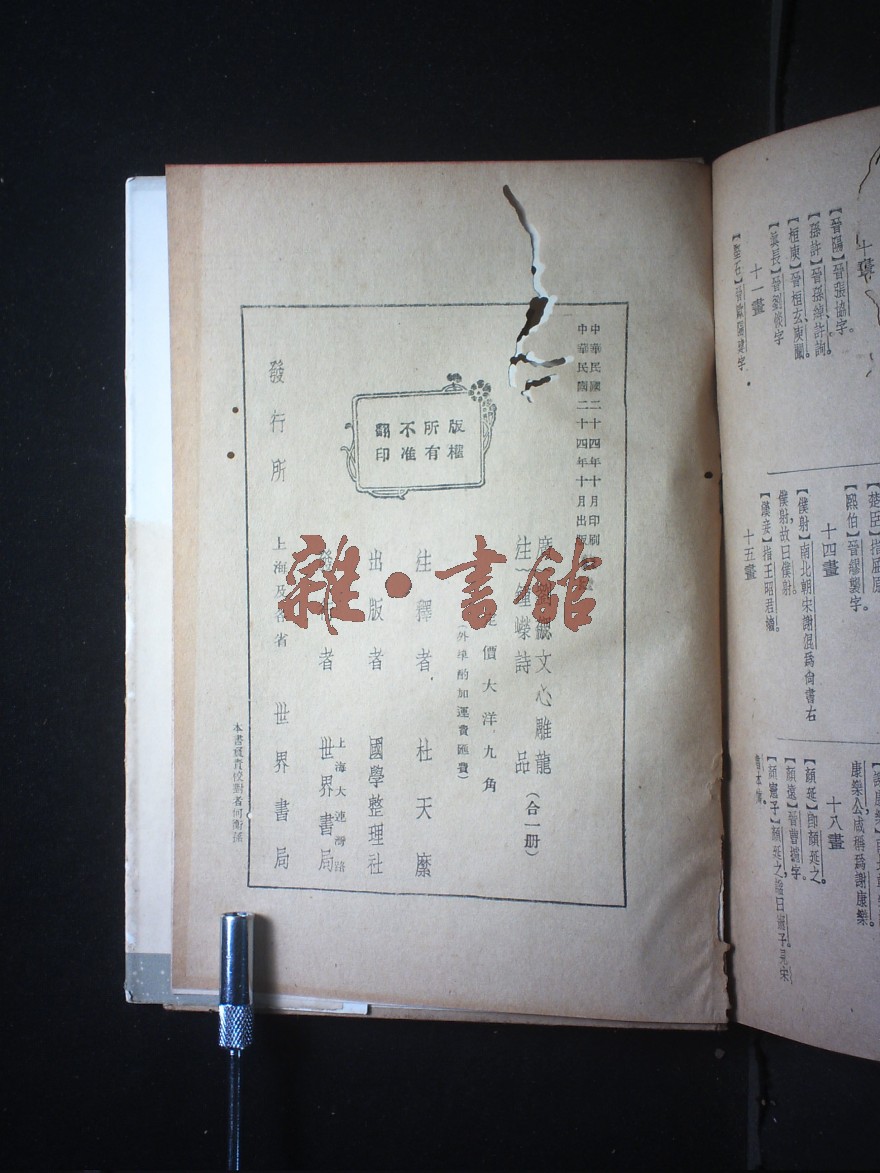 【晉陽】晉張協字。
【孫許】晉孫綽許詢。
【桓庾】晉桓玄、庾闡。
【眞長】晉劉惔字
十一畫
【堅石】晉歐陽建字
楚臣】指屈原
熙伯】晉繆襲字。
十四畫
【僕射】南北朝宋謝混爲尙書右
僕射，故曰僕射。
【漢妾】指王昭君嬙。
十五畫
康樂公咸稱爲謝康樂。
十八畫
【顏延】卽顏延之。
【顏遠】晉曹攄字。
中華民國二十四年十月印刷
中華民國二十四年十月出版
文心雕龍
注 鍾嶸詩品
（合一册）
價大洋九角
（外埠酌加運費匯費）
版權所有
翻印不准
注釋者 杜天縻
出版者 國學整理社
上海大連灣路
者 世界書局
發行所 上海及各省 世界書局
本書負責校對者何衛孫
雜·書館